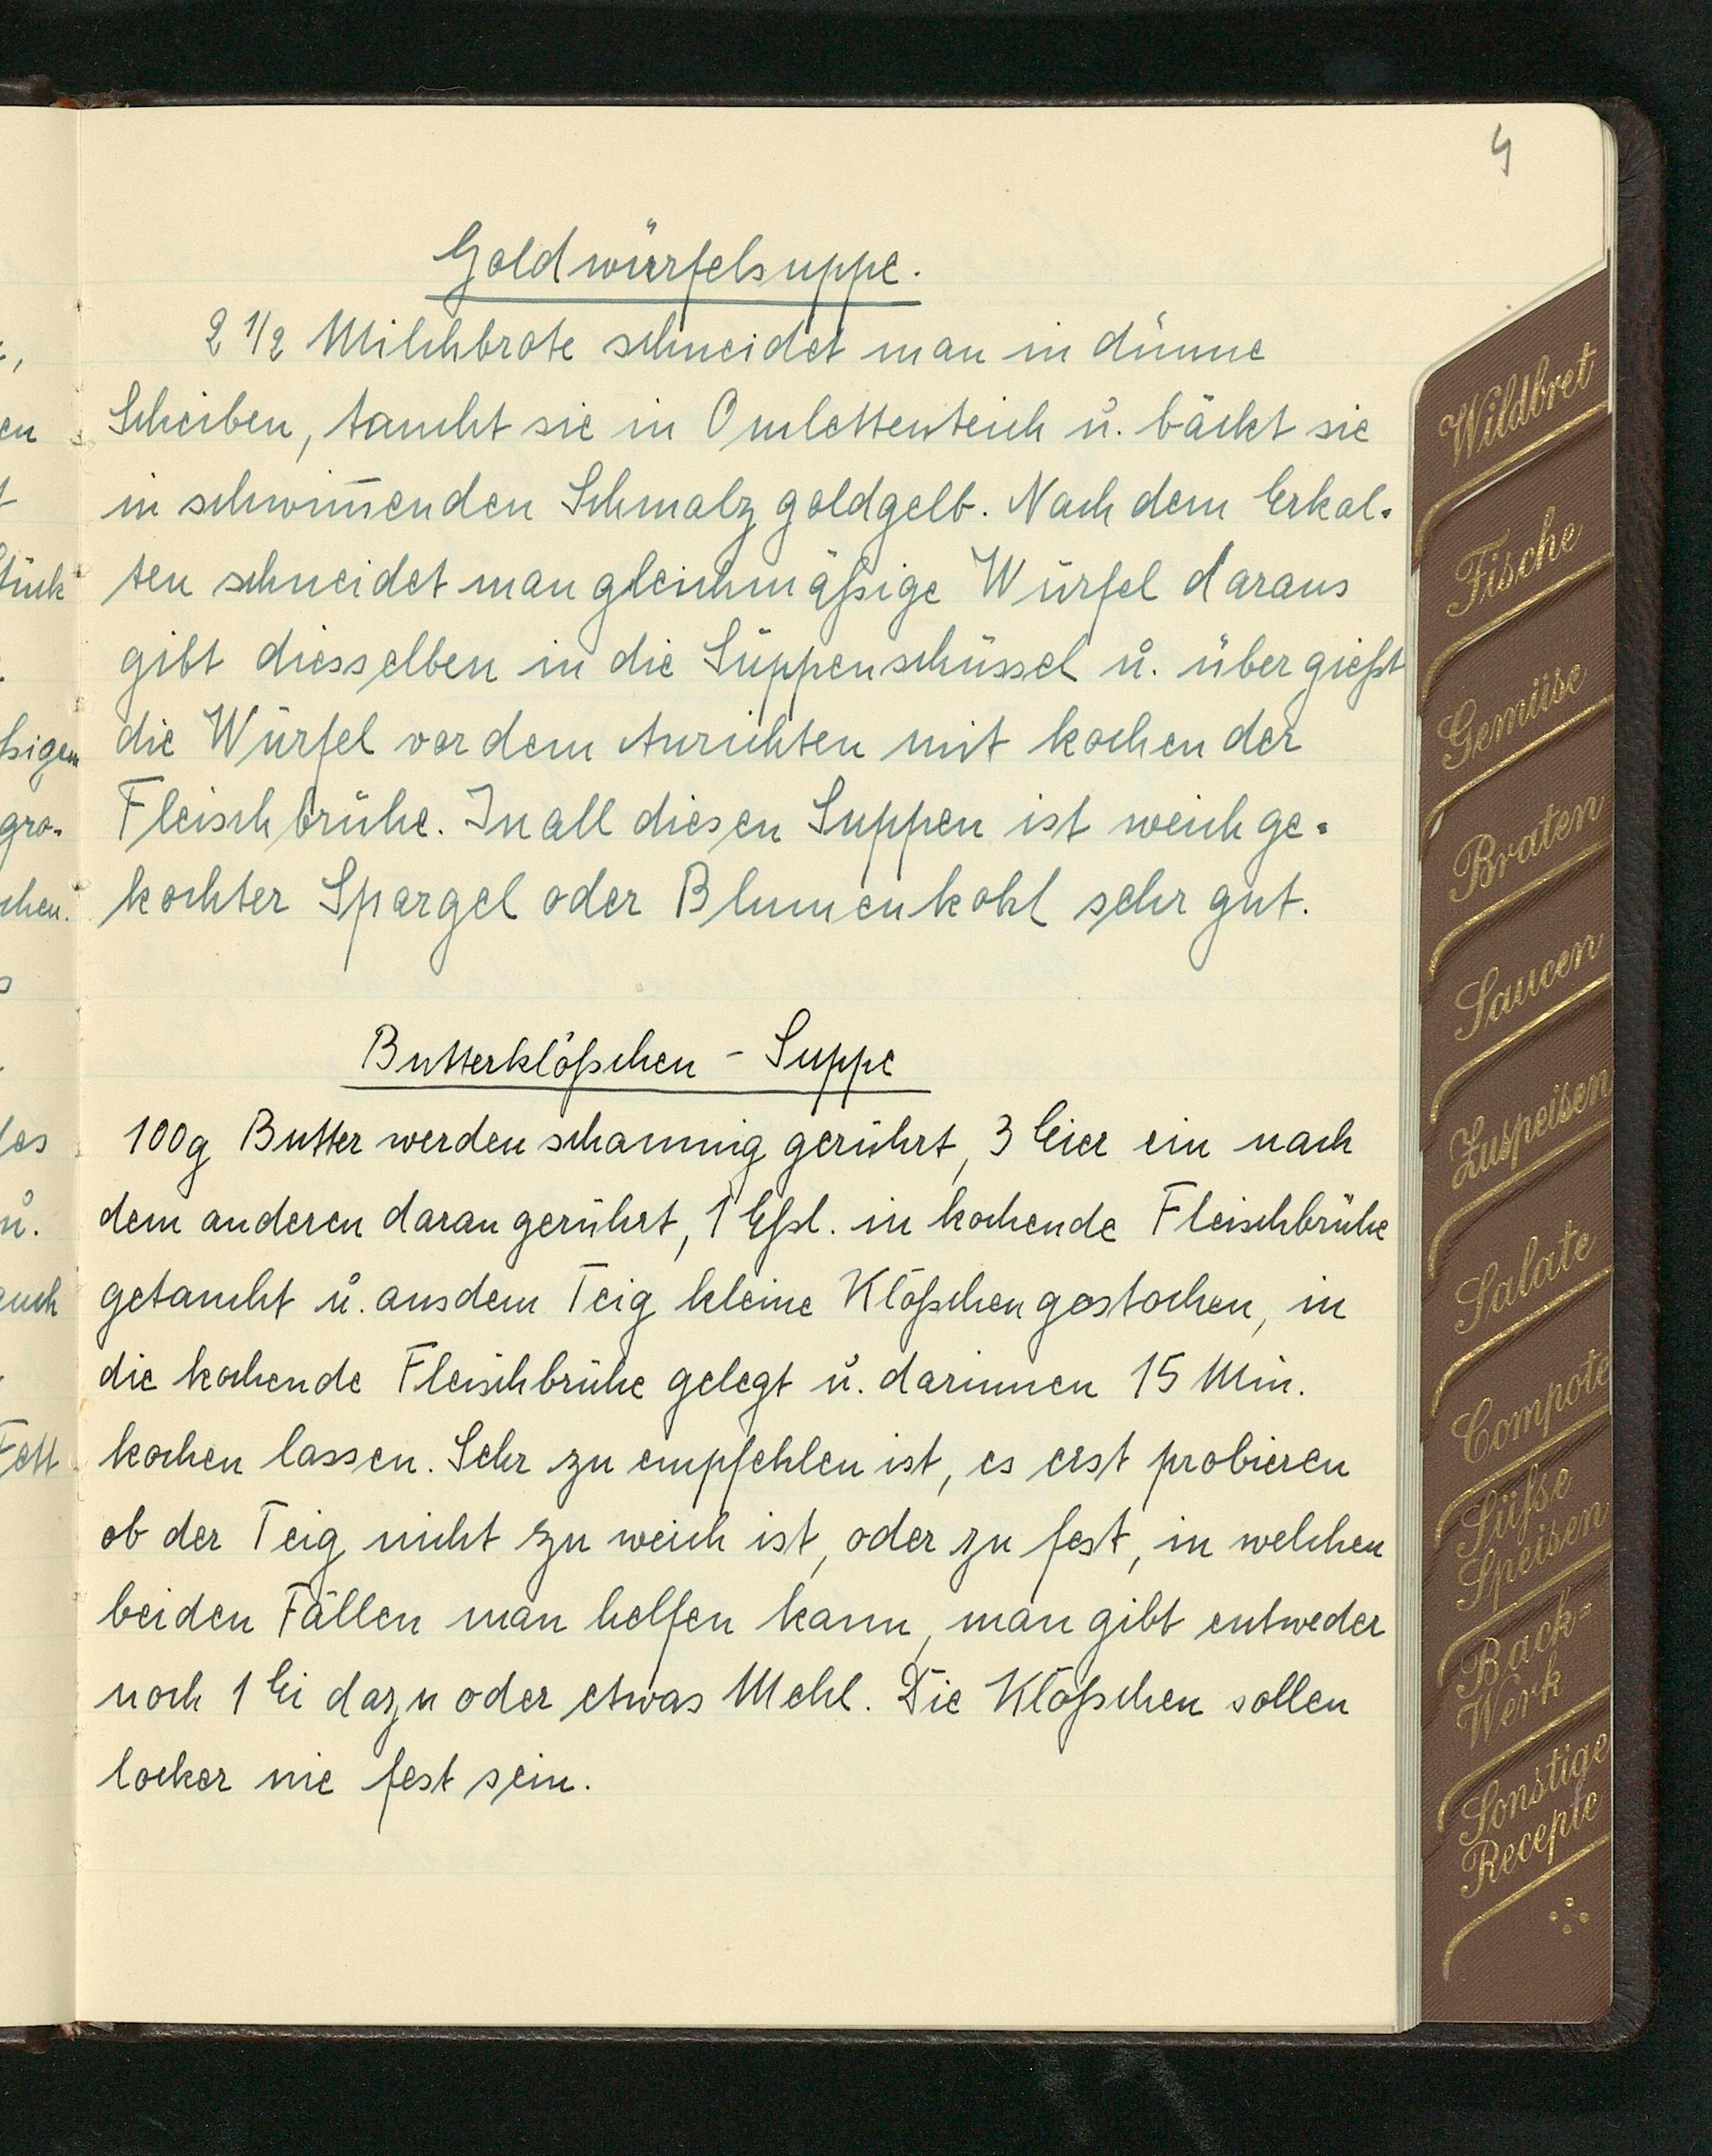 4
Goldwürfelsuppe.
2 1/2 Milchbrote schneidet man in dünne
Scheiben, taucht sie in Omlettenteich u. bäckt sie
in schwim̅enden Schmalz goldgelb. Nach dem Erkal-
ten schneidet man gleichmäßige Würfel daraus
gibt diesselben in die Suppenschüssel u. übergießt
die Würfel vor dem Anrichten mit kochender
Fleischbrühe. In all diesen Suppen ist weich ge-
kochter Spargel oder Blumenkohl sehr gut.
Butterklößchen - Suppe
100g Butter werden schaumig gerührt, 3 Eier ein nach
dem anderen daran gerührt, 1 Eßl. in kochende Fleischbrühe
getaucht u. aus dem Teig kleine Klößchen gestochen, in
die kochende Fleischbrühe gelegt u. darinnen 15 Min.
kochen lassen. Sehr zu empfehlen ist, es erst probieren
ob der Teig nicht zu weich ist, oder zu fest, in welchen
beiden Fällen man helfen kann, man gibt entweder
noch 1 Ei dazu oder etwas Mehl. Die Klößchen sollen
locker nie fest sein.
Wildbret
Fische
Gemüse
Braten
Saucen
Zuspeisen
Salate
Compote
Süßse
Speisen
Back-
Werk
Sonstige
Recepte